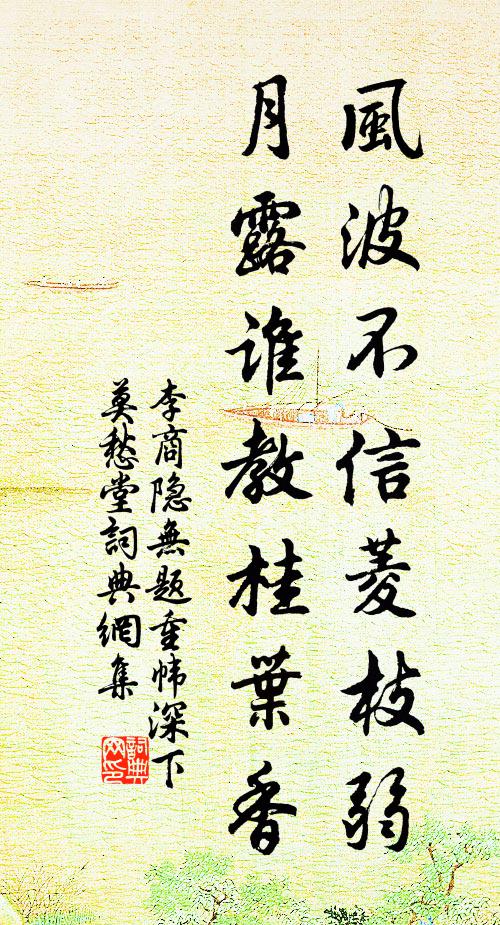 風波不信菱枝弱
月露誰教桂葉香
李商隐無题重帏深下
莫愁堂詞典網集
詞典
网印